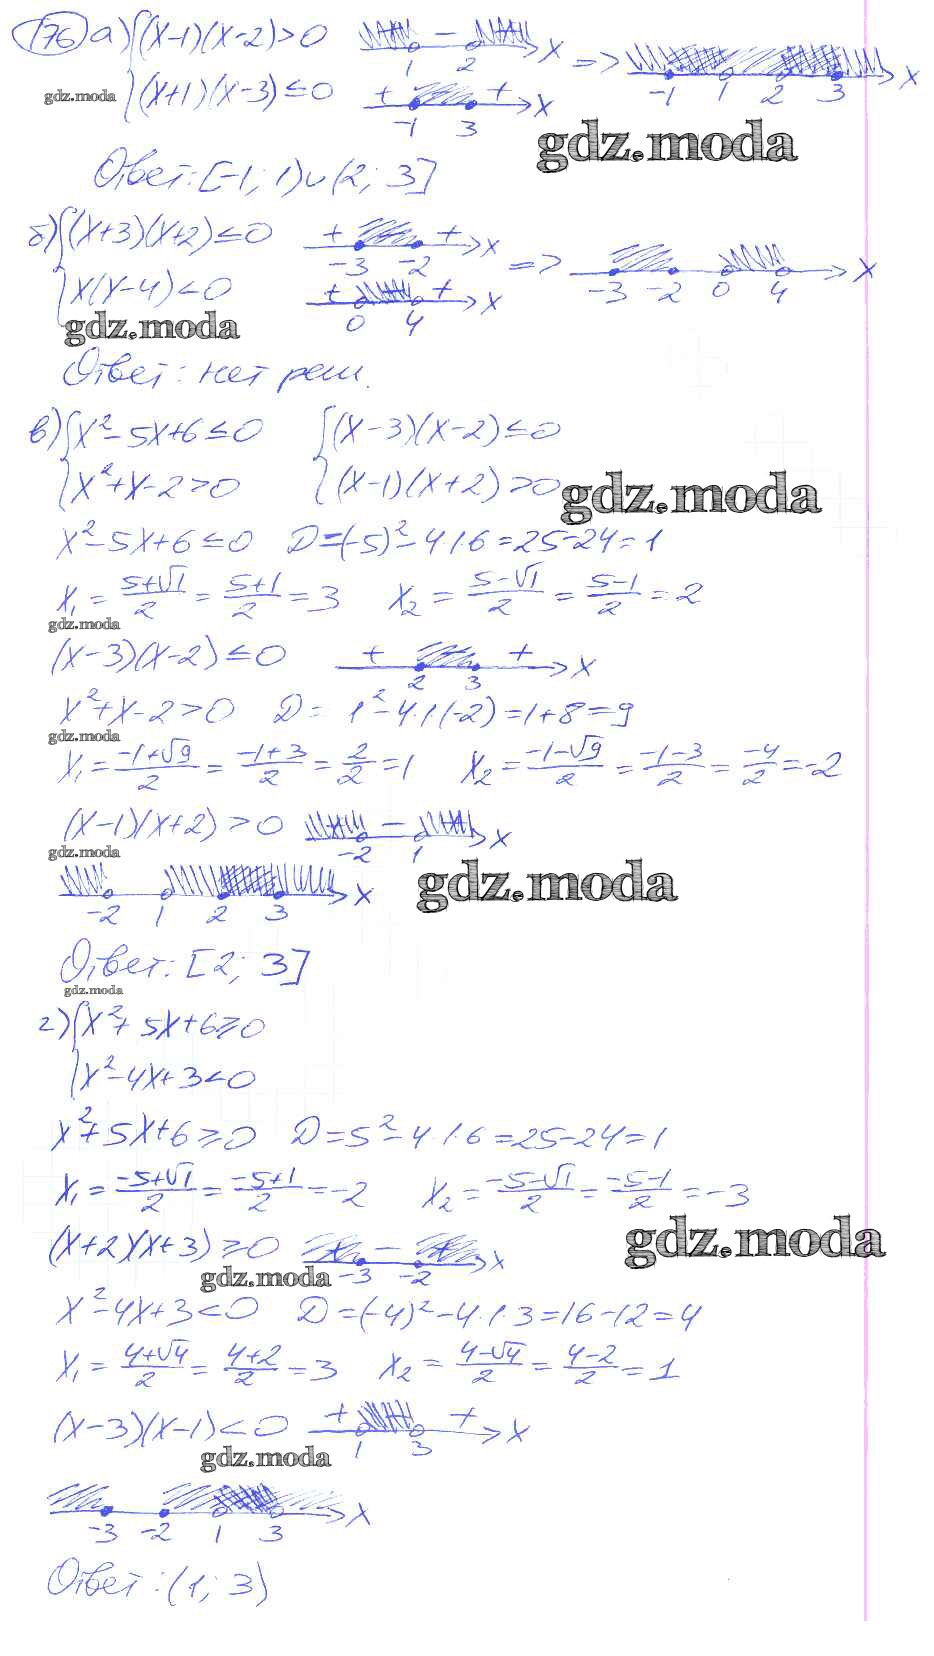 176 а) { (x-1)(x-2)>0 + - + 1 2 x => -1 1 2 3 x
gdz.moda { (x+1)(x-3)≤0 + + -1 3 x
gdz.moda
Ответ: [-1; 1)∪(2; 3]
б) { (x+3)(x+2)≤0 + - + -3 -2 x
{ x(x-4)<0 + - + 0 4 x => -3 -2 0 4 x
gdz.moda
Ответ: нет реш.
в) { x²-5x+6≤0 { (x-3)(x-2)≤0
{ x²+x-2>0 { (x-1)(x+2)>0
gdz.moda
x²-5x+6≤0 D=(-5)²-4·1·6=25-24=1
x₁ = (5+√1)/2 = (5+1)/2 = 3 x₂ = (5-√1)/2 = (5-1)/2 = 2
gdz.moda
(x-3)(x-2)≤0 + - + 2 3 x
x²+x-2>0 D = 1²-4·1·(-2)=1+8=9
gdz.moda
x₁ = (-1+√9)/2 = (-1+3)/2 = 2/2 = 1 x₂ = (-1-√9)/2 = (-1-3)/2 = -4/2 = -2
(x-1)(x+2)>0 + - + -2 1 x
gdz.moda
-2 1 2 3 x
gdz.moda
Ответ: [2; 3]
gdz.moda
г) { x²+5x+6≥0
{ x²-4x+3<0
x²+5x+6≥0 D=5²-4·1·6=25-24=1
x₁ = (-5+√1)/2 = (-5+1)/2 = -2 x₂ = (-5-√1)/2 = (-5-1)/2 = -3
(x+2)(x+3)≥0 + - + -3 -2 x
gdz.moda
gdz.moda
x²-4x+3<0 D=(-4)²-4·1·3=16-12=4
x₁ = (4+√4)/2 = (4+2)/2 = 3 x₂ = (4-√4)/2 = (4-2)/2 = 1
(x-3)(x-1)<0 + - + 1 3 x
gdz.moda
-3 -2 1 3 x
Ответ: (1; 3)